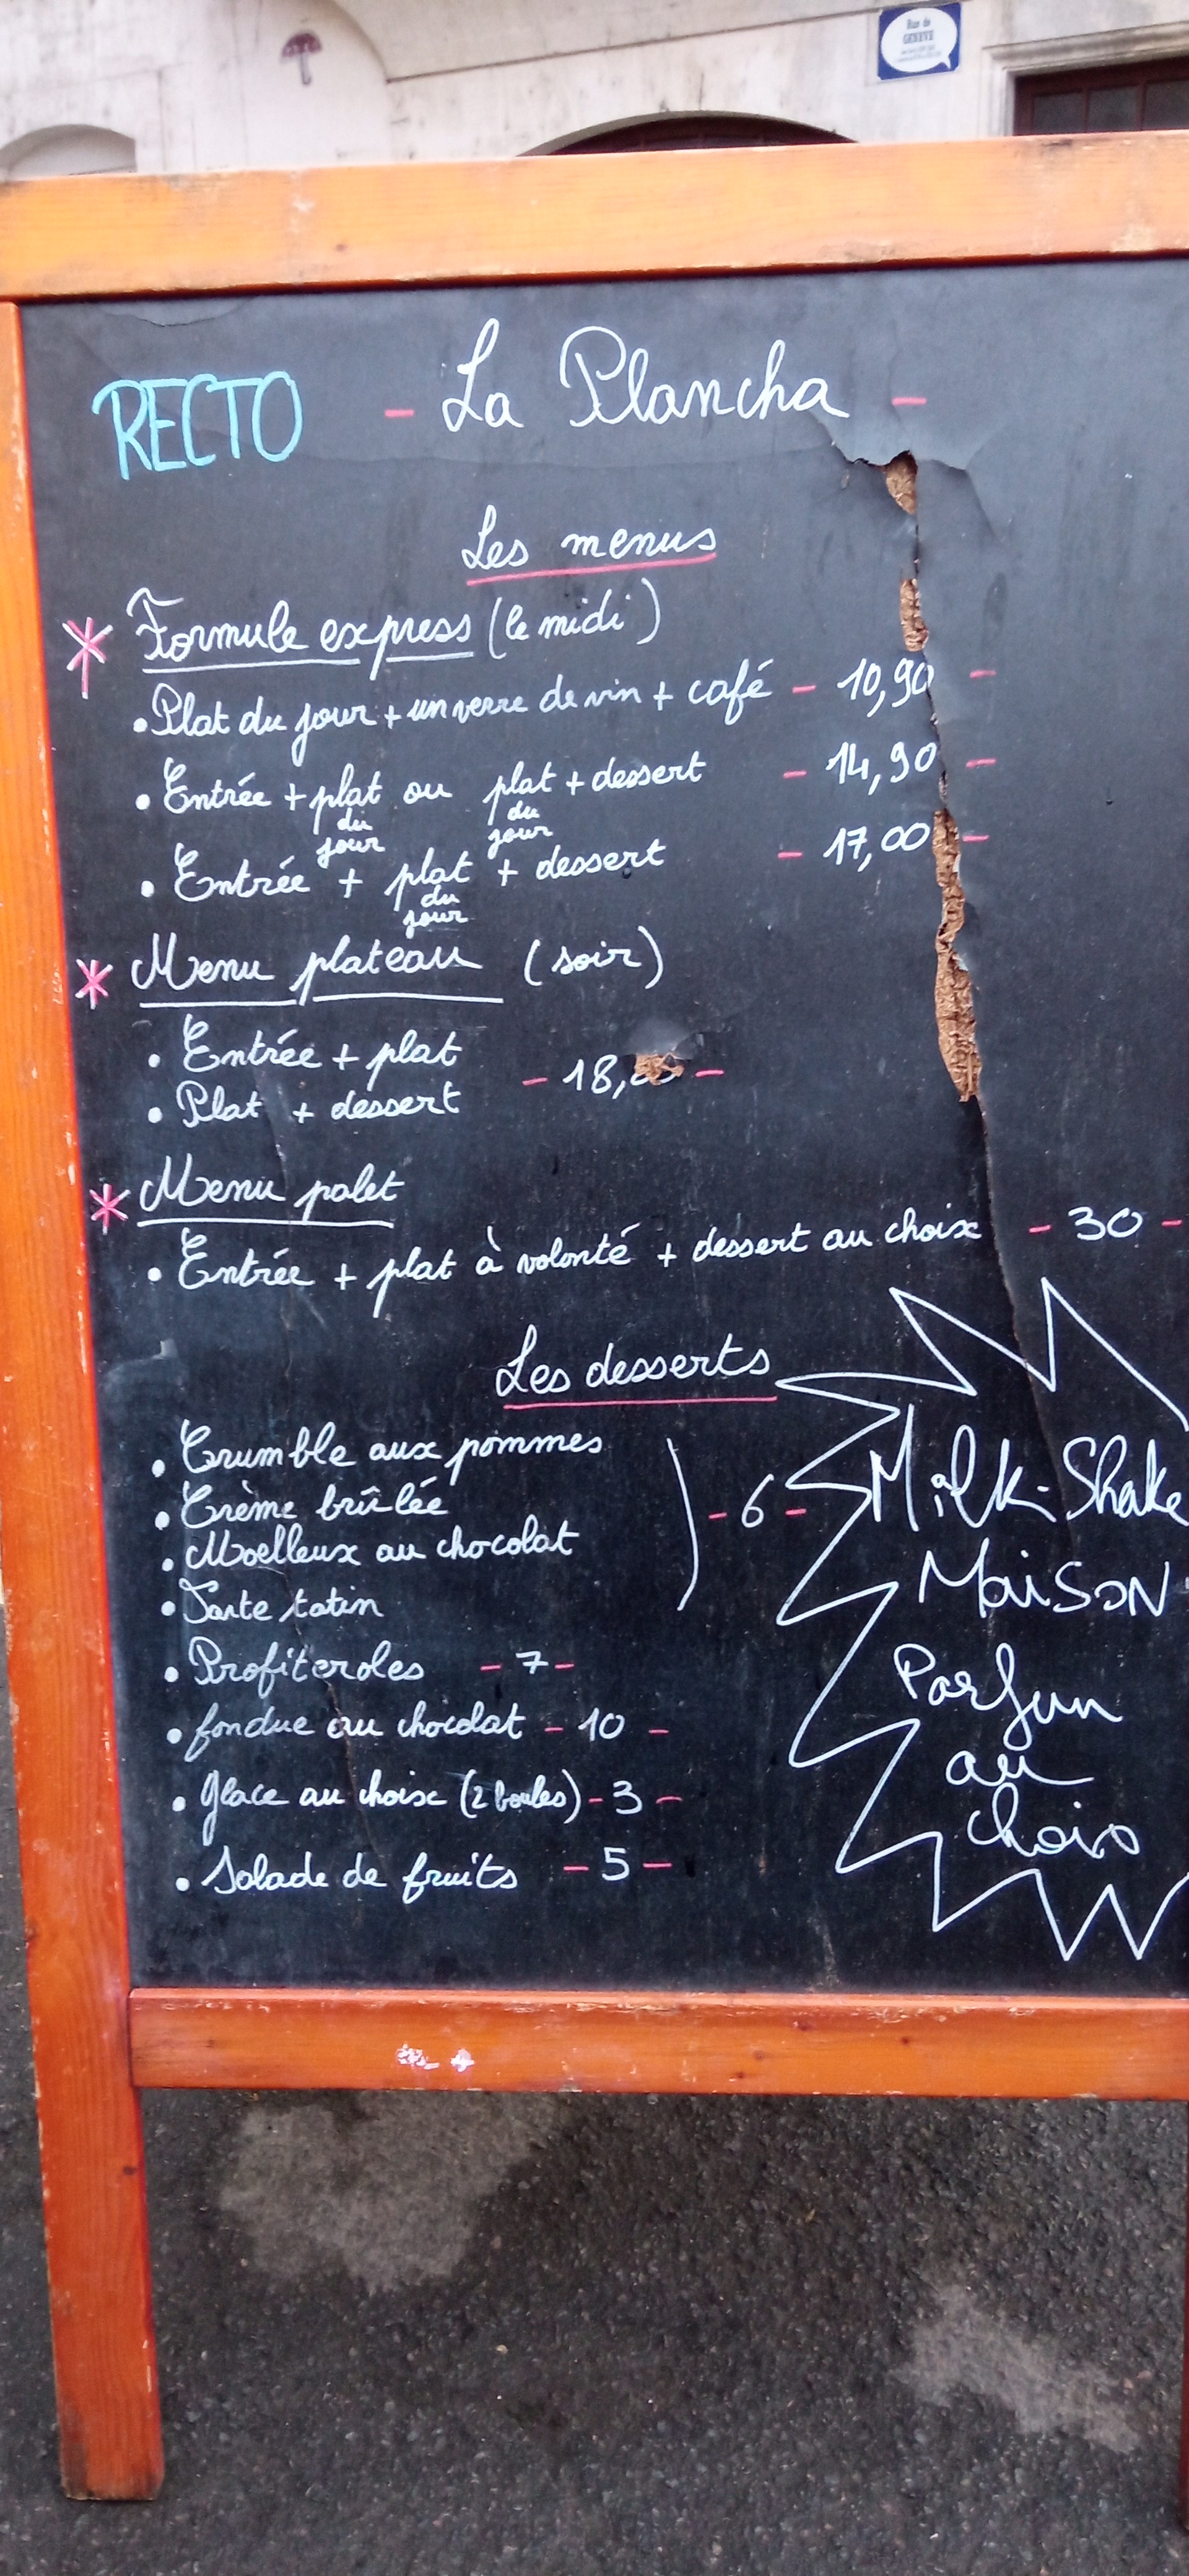 Rue de
GENÈVE
RECTO
- La Plancha -
Les menus
* Formule express (le midi)
• Plat du jour + un verre de vin + café - 10,90 -
• Entrée + plat du jour ou plat du jour + dessert - 14,90 -
• Entrée + plat du jour + dessert - 17,00 -
* Menu plateau (soir)
• Entrée + plat
- 18, -
• Plat + dessert
* Menu palet
• Entrée + plat à volonté + dessert au choix - 30 -
Les desserts
• Crumble aux pommes
• Crème brûlée
- 6 -
• Moelleux au chocolat
• Tarte tatin
• Profiteroles - 7 -
• fondue au chocolat - 10 -
• glace au choix (2 boules) - 3 -
• Salade de fruits - 5 -
Milk-Shake
MaiSON
Parfum
au
choix